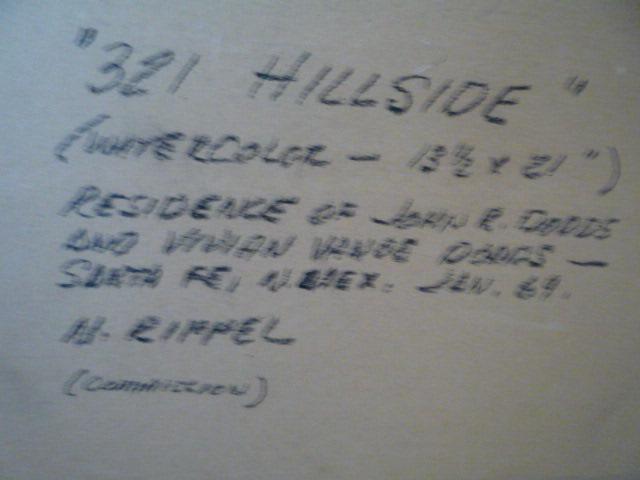 "321 HILLSIDE"
(WATERCOLOR — 13½ x 21")
RESIDENCE OF JOHN R. DODDS
AND VIVIAN VANCE DODDS —
SANTA FE, N. MEX. JAN. 69.
RIPPEL
(COMMISSION)